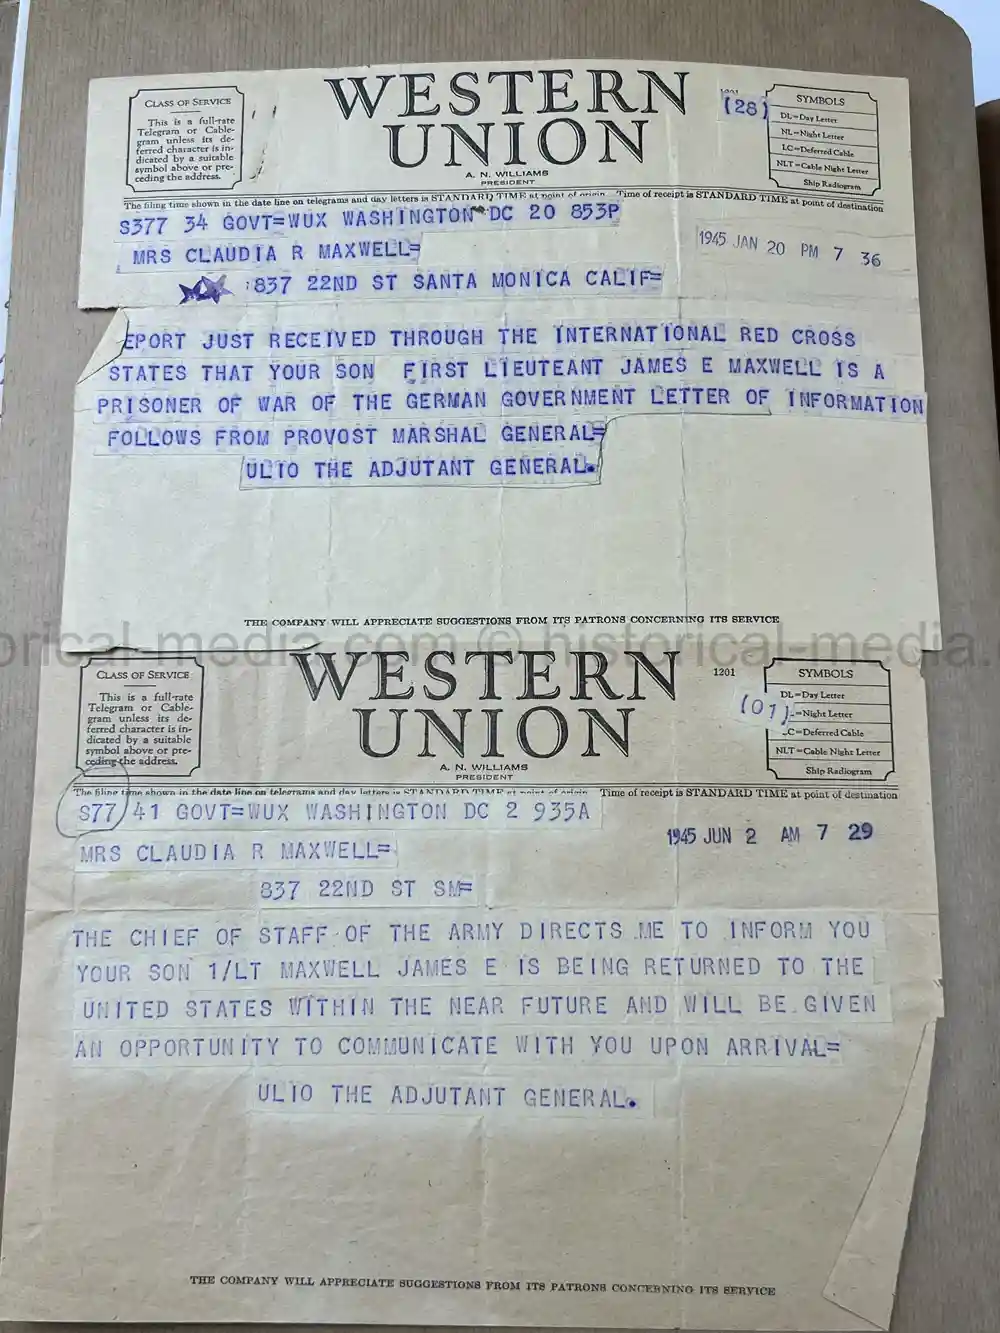 CLASS OF SERVICE
This is a full-rate
Telegram or Cable-
gram unless its de-
ferred character is in-
dicated by a suitable
symbol above or pre-
ceding the address.
WESTERN
UNION
A. N. WILLIAMS
PRESIDENT
1201
(28)
SYMBOLS
DL=Day Letter
NL=Night Letter
LC=Deferred Cable
NLT=Cable Night Letter
Ship Radiogram
The filing time shown in the date line on telegrams and day letters is STANDARD TIME at point of origin. Time of receipt is STANDARD TIME at point of destination
S377 34 GOVT=WUX WASHINGTON DC 20 853P
MRS CLAUDIA R MAXWELL=
1945 JAN 20 PM 7 36
:837 22ND ST SANTA MONICA CALIF=
EPORT JUST RECEIVED THROUGH THE INTERNATIONAL RED CROSS
STATES THAT YOUR SON FIRST LIEUTEANT JAMES E MAXWELL IS A
PRISONER OF WAR OF THE GERMAN GOVERNMENT LETTER OF INFORMATION
FOLLOWS FROM PROVOST MARSHAL GENERAL=
ULIO THE ADJUTANT GENERAL.
THE COMPANY WILL APPRECIATE SUGGESTIONS FROM ITS PATRONS CONCERNING ITS SERVICE
orical-media.com © historical-media.
CLASS OF SERVICE
This is a full-rate
Telegram or Cable-
gram unless its de-
ferred character is in-
dicated by a suitable
symbol above or pre-
ceding the address.
WESTERN
UNION
A. N. WILLIAMS
PRESIDENT
1201
(01)
SYMBOLS
DL=Day Letter
=Night Letter
C=Deferred Cable
NLT=Cable Night Letter
Ship Radiogram
The filing time shown in the date line on telegrams and day letters is STANDARD TIME at point of origin. Time of receipt is STANDARD TIME at point of destination
S77 41 GOVT=WUX WASHINGTON DC 2 935A
1945 JUN 2 AM 7 29
MRS CLAUDIA R MAXWELL=
837 22ND ST SM=
THE CHIEF OF STAFF OF THE ARMY DIRECTS ME TO INFORM YOU
YOUR SON 1/LT MAXWELL JAMES E IS BEING RETURNED TO THE
UNITED STATES WITHIN THE NEAR FUTURE AND WILL BE GIVEN
AN OPPORTUNITY TO COMMUNICATE WITH YOU UPON ARRIVAL=
ULIO THE ADJUTANT GENERAL.
THE COMPANY WILL APPRECIATE SUGGESTIONS FROM ITS PATRONS CONCERNING ITS SERVICE